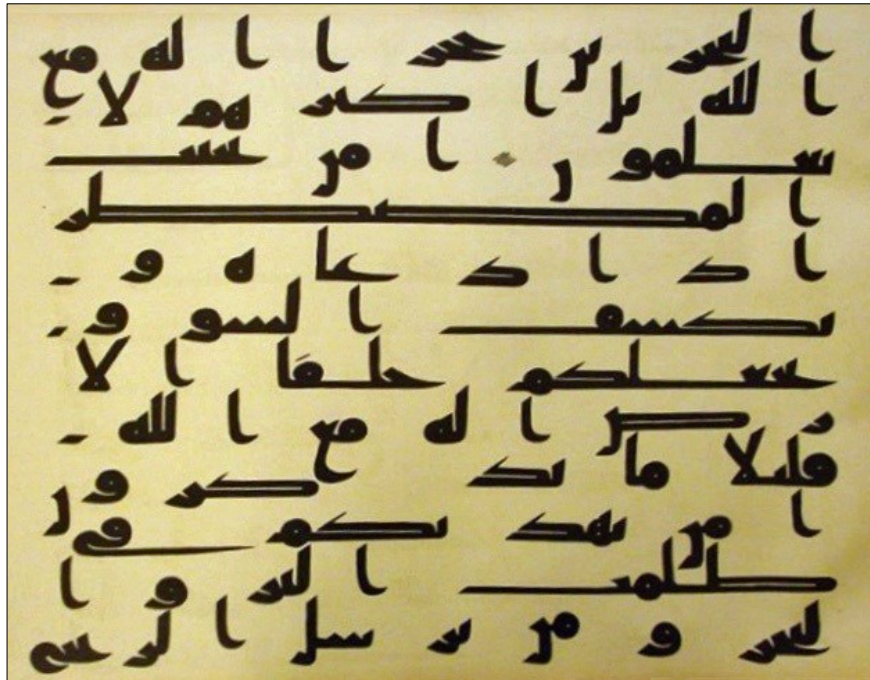 البحرين حجزا اله مع
الله بل اكثرهم لا
يعلمون امن يجيب
المضطر
اذا دعاه و
يكشف السو و
يجعلكم خلفا الا
رض اله مع الله
قليلا ما تذكرون
امن يهديكم في
ظلمت البر و ا
لبحر و من يرسل الريح